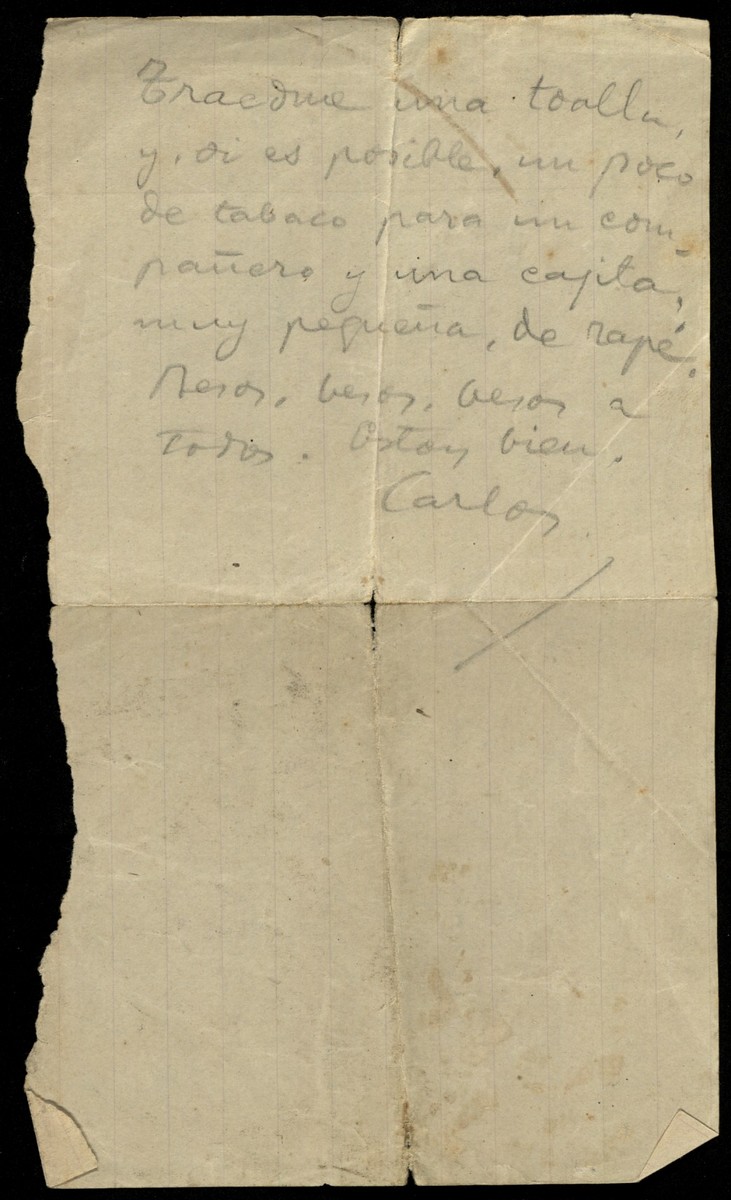 Traedme una toalla,
y, si es posible, un poco
de tabaco para un com-
pañero y una cajita,
muy pequeña, de rapé.
Besos, besos, besos a
todos. Estoy bien.
Carlos